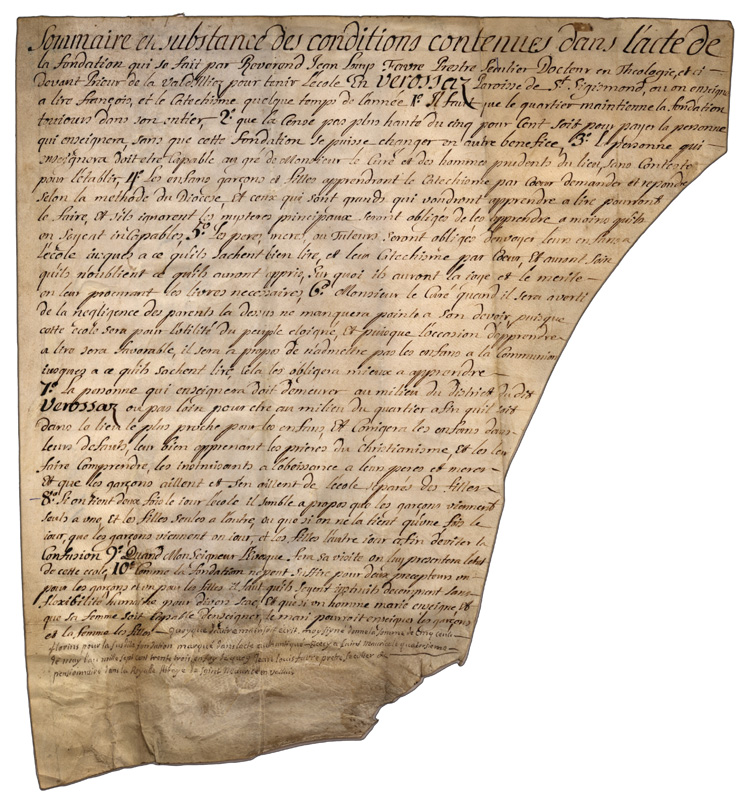 Sommaire en substance des conditions contenues dans l'acte de
la fondation qui se fait par Reverend Jean Loup Favre Prestre Seculier Docteur en Theologie, et ci-
devant Prieur de la Vald'Illiez pour tenir l'ecole En Verossaz Paroisse de St. Sigismond, ou on enseigne
a lire françois, et le Catechisme quelque temps de l'année 1º Il faut que le quartier maintienne la fondation
tousiours dans son entier, 2º que la Cense pas plus haute du cinq pour Cent soit pour payer la personne
qui enseignera, sans que cette fondation se puisse changer en autre benefice, 3º la personne qui
enseignera doit etre Capable au gré de Monsieur le Curé et des hommes prudents du lieu, sans Conteste
pour l'etablir, 4º les enfans garçons et filles apprendront le Catechisme par Coeur demander et repondre
selon la methode du Diocese, et ceux qui sont grands qui voudront apprendre a lire pourront
le faire, et s'ils ignorent les mysteres principaux seront obliges de les apprendre a moins qu'ils
en soyent incapables, 5º les pere, mere, ou Tuteurs seront obligés d'envoyer leurs enfans a
l'ecole iusques a ce qu'ils sachent bien lire, et leur Catechisme par Coeur, et auront soin
qu'ils n'oublient ce qu'ils auront appris, sur quoi ils auront la ioye et le merite
en leur procurant les livres necessaires 6º Monsieur le Curé quand il sera averti
de la negligence des parents la dessus ne manquera point a son devoir, puisque
cette ecole sera pour l'utilité du peuple eloigné, et puisque l'occasion d'apprendre
a lire sera favorable, il sera a propos de n'admettre pas les enfans a la Communion
iusques a ce qu'ils sachent lire, cela les obligera mieux a apprendre
7º La personne qui enseignera doit demeurer au milieu du district du dit
Verossaz ou pas loin pour etre au milieu du quartier afin qu'il soit
dans le lieu le plus proche pour les enfans, et Corrigera les enfans dans
leurs defauts, leur bien apprenant les prieres du Christianisme, et les leur
faire Comprendre, les instruisants a l'obeissance a leur peres et meres
Et que les garçons aillent et s'en aillent de l'ecole separés des filles
8º Si on tient deux fois le iour l'ecole il semble a propos que les garçons viennent
seuls a une, et les filles seules a l'autre, ou que si on ne la tient qu'une fois le
iour, que les garçons viennent un iour, et les filles l'autre iour afin d'eviter la
Confusion 9º Quand Monseigneur l'Eveque fera sa visite on lui presentera l'etat
de cette ecole, 10º Comme la fondation ne peut suffire pour deux precepteurs un
pour les garçons et un pour les filles il faut qu'ils soyent
flexibilité humaine pour divers sexe, Et que si un homme marié enseigne, et
que sa femme soit Capable d'enseigner, le mari pourroit enseigner les garçons
et la femme les filles
florins pour la susdite fondation marqué dans l'acte authentique
de may l'an mille sept cent trente trois Jean Louis Favre pretre Seculier
pensionnaire dans la Royale Abbaye de Saint Maurice en Vallais